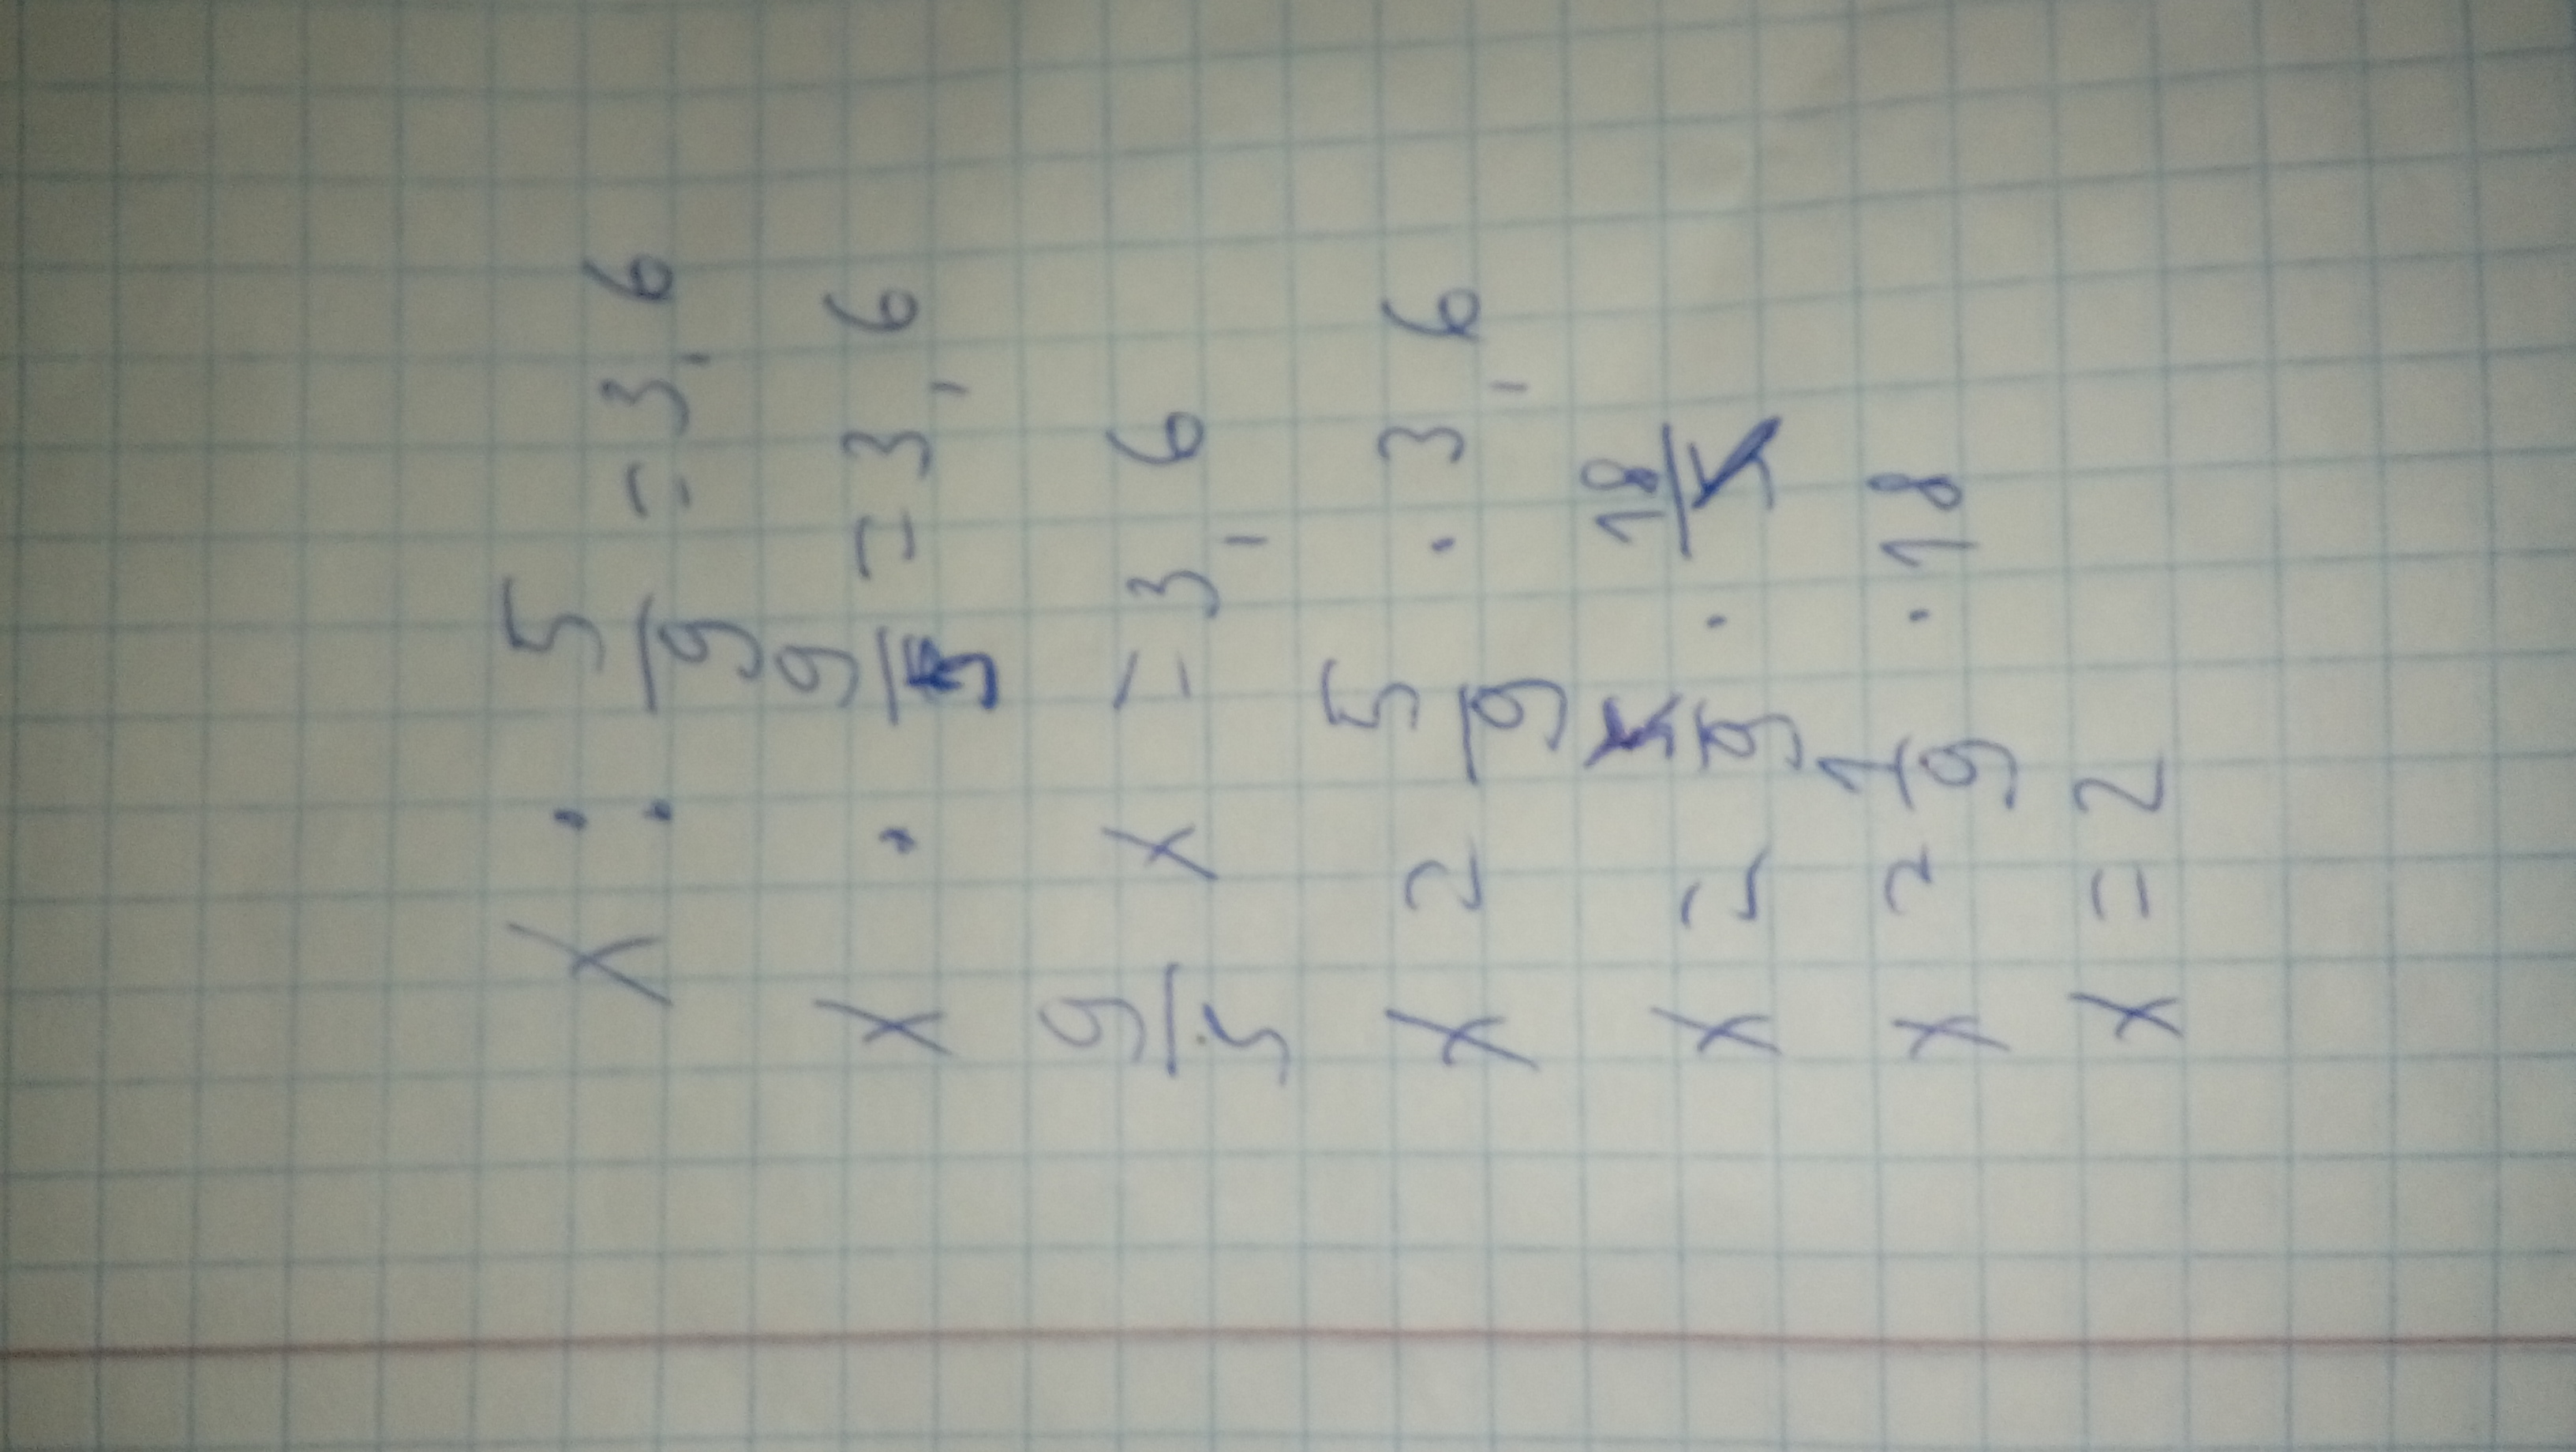 x : 5/9 = 3,6
x · 9/5 = 3,6
9/5 x = 3,6
x = 5/9 · 3,6
x = 5/9 · 18/5
x = 1/9 · 18
x = 2